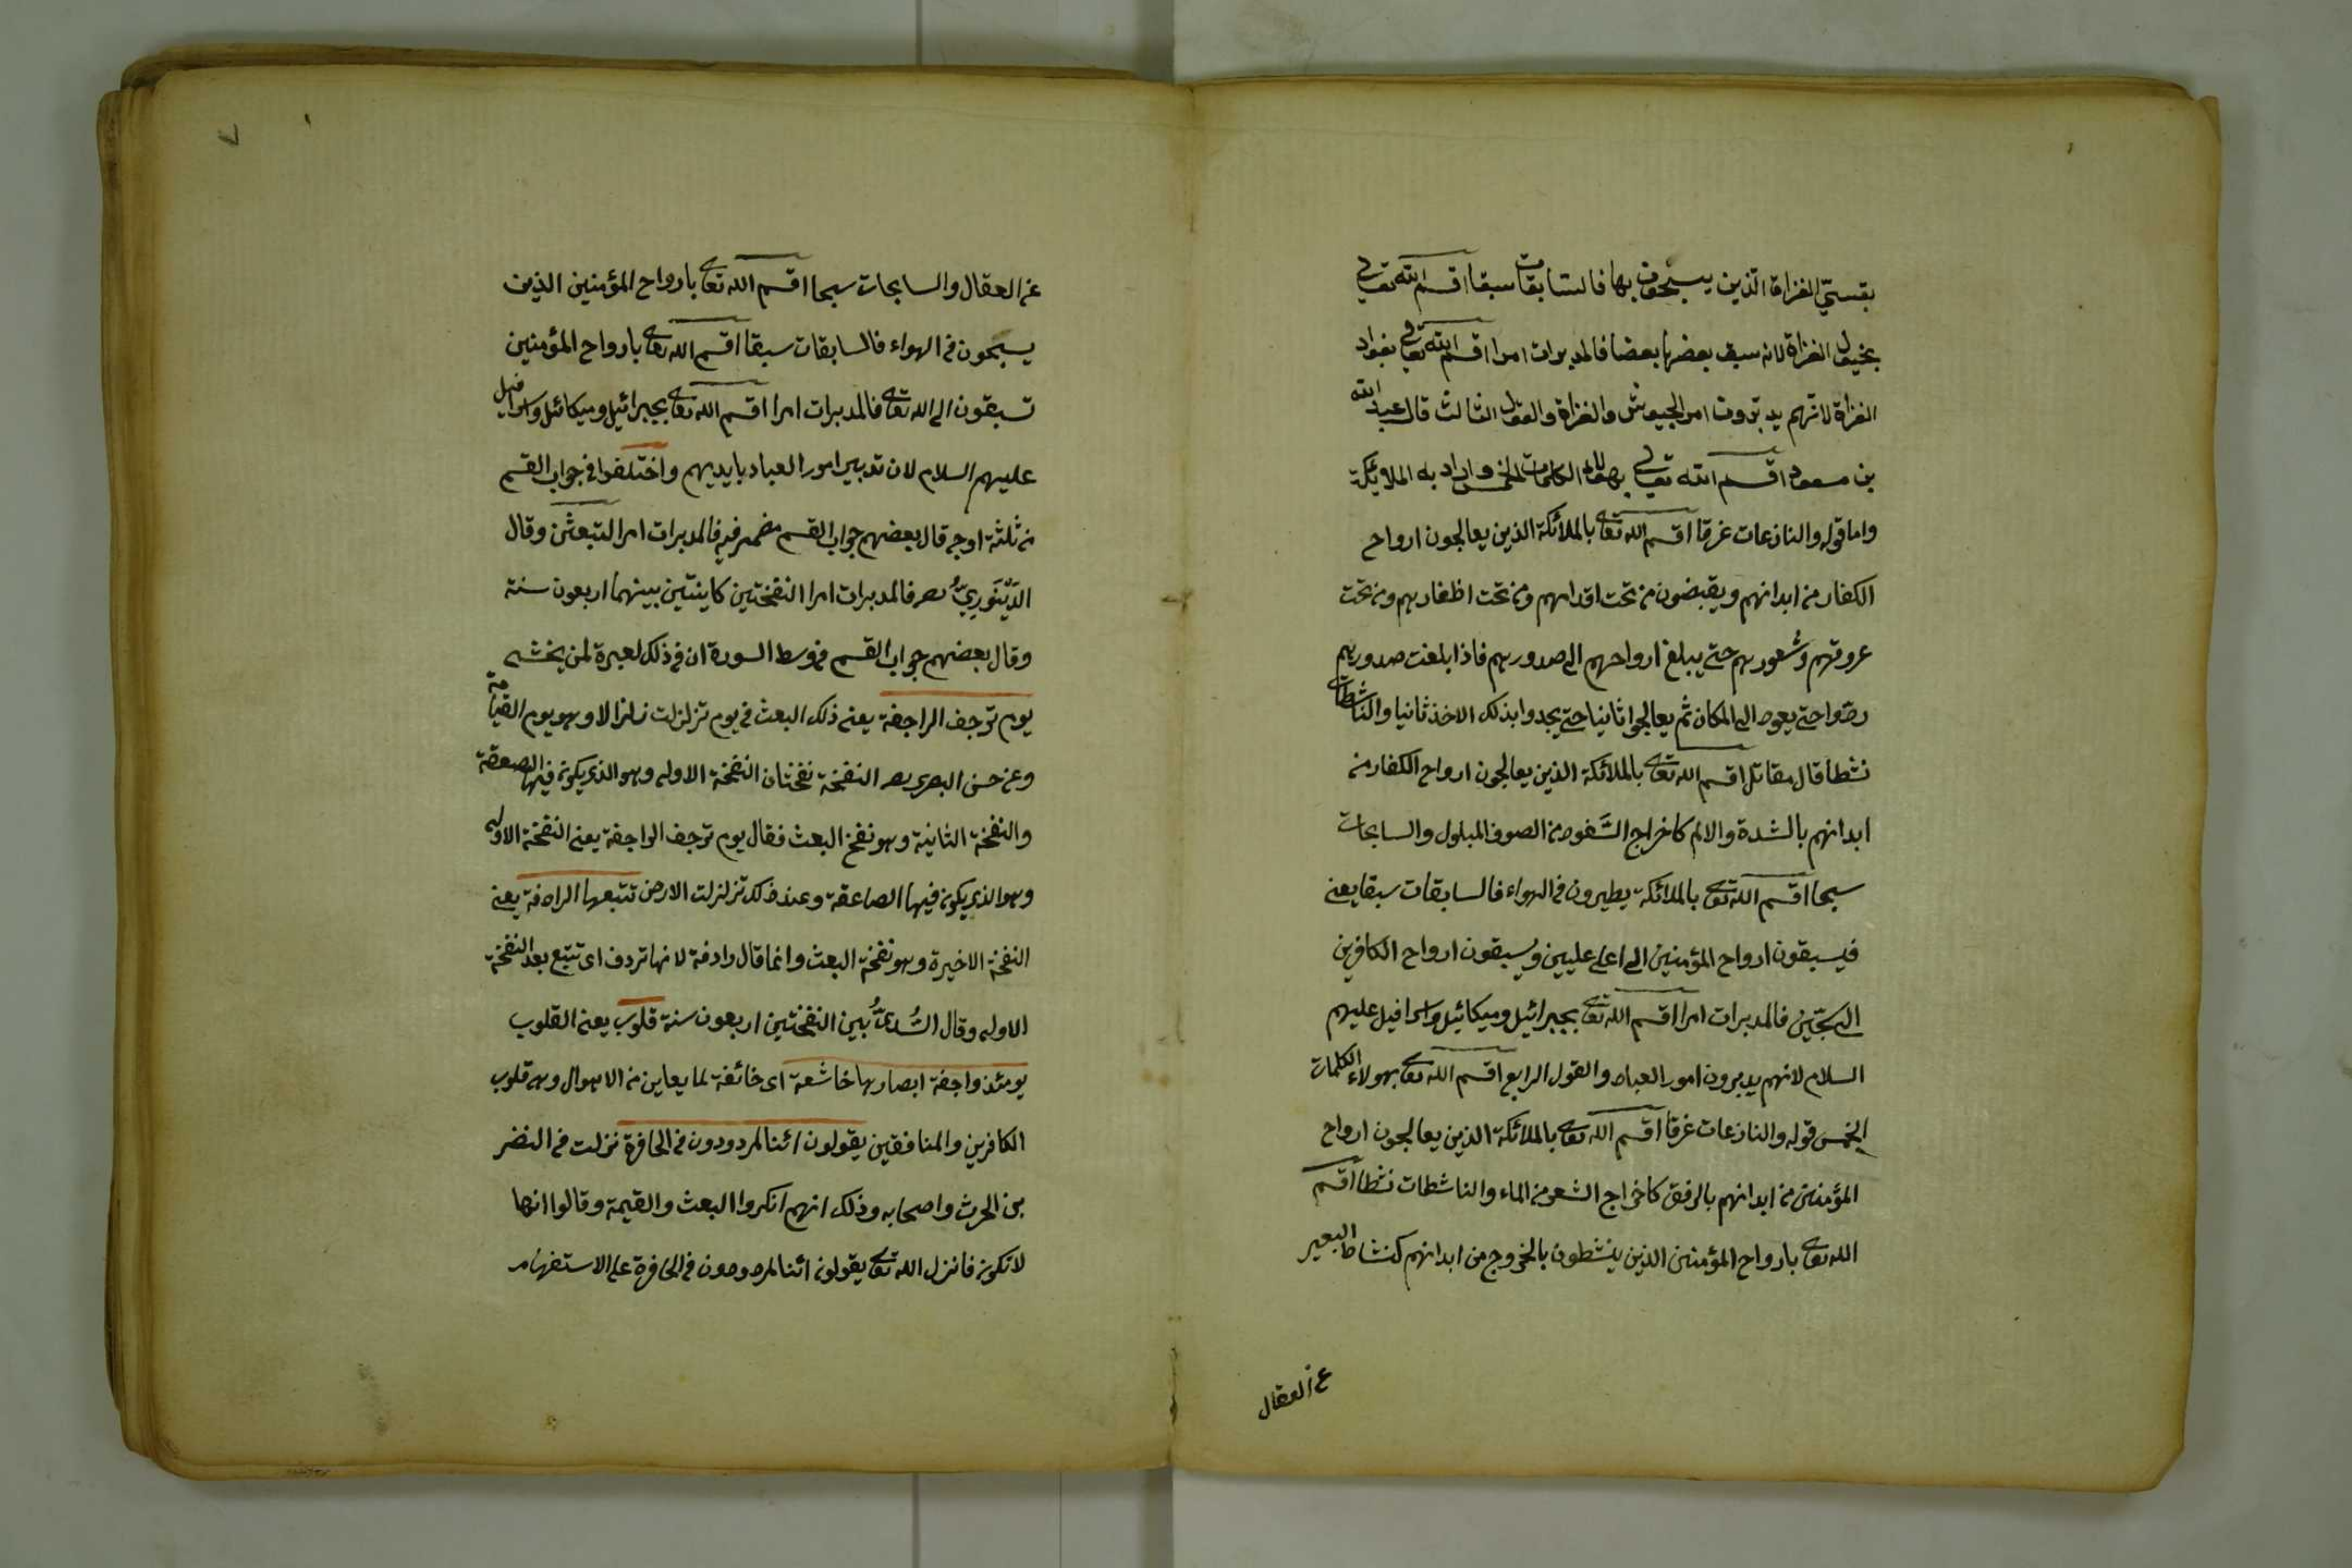 بقسيّ الغزاة الذين يسبحون بها فالسابقات سبقا اقسم الله تعالى
بخيول الغزاة لانه سبق بعضها بعضا فالمدبرات امرا اقسم الله تعالى بقواد
الغزاة لانهم يدبرون امر الجيوش والغزاة والقول الثالث قال عبد الله
بن مسعود اقسم الله تعالى بهؤلاء الكلمات الخمس واراد به الملائكة
واما قوله والنازعات غرقا اقسم الله تعالى بالملائكة الذين يعالجون ارواح
الكفار من ابدانهم ويقبضون من تحت اقدامهم ومن تحت اظفارهم ومن تحت
عروقهم وشعورهم حتى يبلغ ارواحهم الى صدورهم فاذا بلغت صدورهم
ردّوا حتى يعود الى المكان ثم يعالجوا ثانيا حتى يجدوا بذلك الاخذ ثانيا والناشطات
نشطا قال مقاتل اقسم الله تعالى بالملائكة الذين يعالجون ارواح الكفار من
ابدانهم بالشدة والالم كاخراج السَّفود من الصوف المبلول والسابحات
سبحا اقسم الله تعالى بالملائكة يطيرون في الهواء فالسابقات سبقا يعني
فيسبقون ارواح المؤمنين الى اعلى عليين ويسبقون ارواح الكافرين
الى سجّين فالمدبرات امرا اقسم الله تعالى بجبرائيل وميكائيل واسرافيل عليهم
السلام لانهم يدبرون امور العباد والقول الرابع اقسم الله تعالى بهولاء الكلمات
الخمس قوله والنازعات غرقا اقسم الله تعالى بالملائكة الذين يعالجون ارواح
المؤمنين من ابدانهم بالرفق كاخراج الشعر من الماء والناشطات نشطا اقسم
الله تعالى بارواح المؤمنين الذين ينشطون بالخروج من ابدانهم كنشاط البعير
عن العقال
عن العقال والسابحات سبحا اقسم الله تعالى بارواح المؤمنين الذين
يسبحون في الهواء فالسابقات سبقا اقسم الله تعالى بارواح المؤمنين
تسبقون الى الله تعالى فالمدبرات امرا اقسم الله تعالى بجبرائيل وميكائيل واسرافيل
عليهم السلام لان تدبير امور العباد بايديهم واختلفوا في جواب القسم
من ثلثة اوجه قال بعضهم جواب القسم مضمر فيه فالمدبرات امرا لتبعثن وقال
الدَّيْنَوَرِيُّ فالمدبرات امرا النفختين كاينتين بينهما اربعون سنة
وقال بعضهم جواب القسم في وسط السورة ان في ذلك لعبرة لمن يخشى
يوم ترجف الراجفة يعني ذلك البعث في يوم تزلزلت زلزالا وهو يوم القيامة
وعن حسن البصري النفخة نفختان النفخة الاولى وهو الذي يكون فيها الصعقة
والنفخة الثانية وهو نفخ البعث فقال يوم ترجف الراجفة يعني النفخة الاولى
وهو الذي يكون فيها الصاعقة وعند ذلك تزلزلت الارض تتبعها الرادفة يعني
النفخة الاخيرة وهو نفخة البعث وانما قال رادفة لانها تردف اى تتبع بعد النفخة
الاولى وقال السُّدىُّ بين النفختين اربعون سنة قلوب يعني القلوب
يومئذ واجفة ابصارها خاشعة اى خائفة لما يعاين من الاهوال وهى قلوب
الكافرين والمنافقين يقولون ائنا لمردودون في الحافرة نزلت في النضر
بن الحرث واصحابه وذلك انهم انكروا البعث والقيمة وقالوا انها
لا تكون فانزل الله تعالى يقولون ائنا لمردودون في الحافرة على الاستفهام